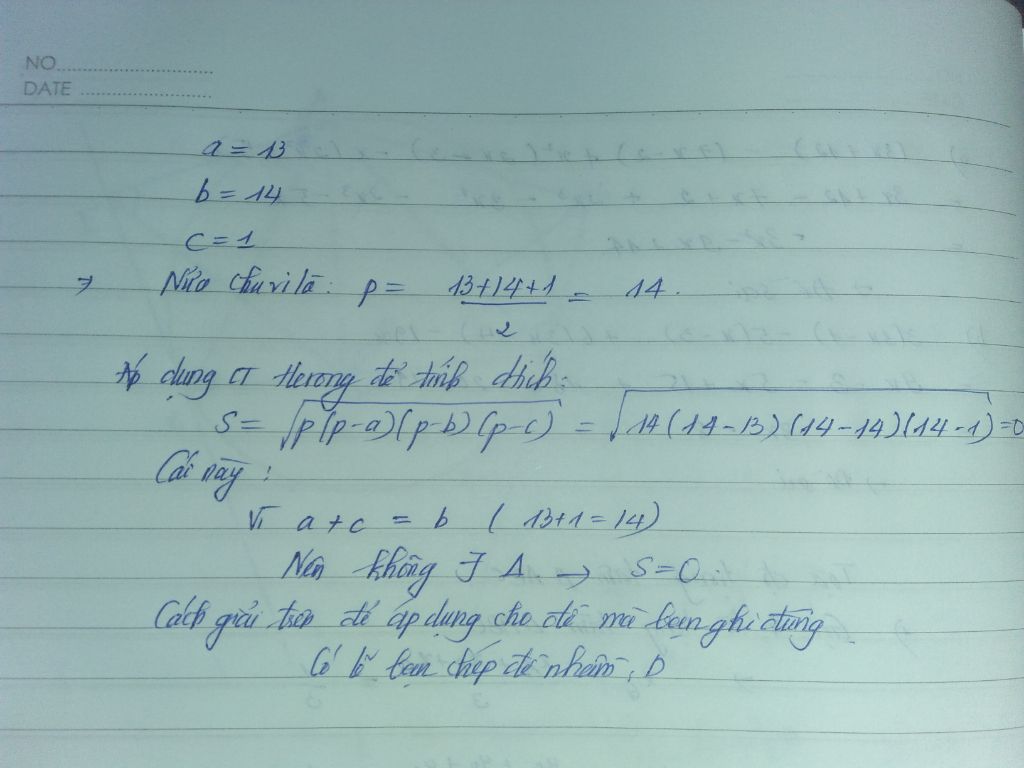 NO.
DATE
a = 13
b = 14
c = 1
⇒ Nửa chu vi là: p = (13+14+1)/2 = 14.
Áp dụng CT Herong để tính dtích:
S = √p(p-a)(p-b)(p-c) = √14(14-13)(14-14)(14-1) = 0
Cái này:
Vì a + c = b (13+1=14)
Nên không ∃ Δ → S=0
Cách giải trên để áp dụng cho đề mà bạn ghi đúng
Có lẽ bạn chép đề nhầm :D